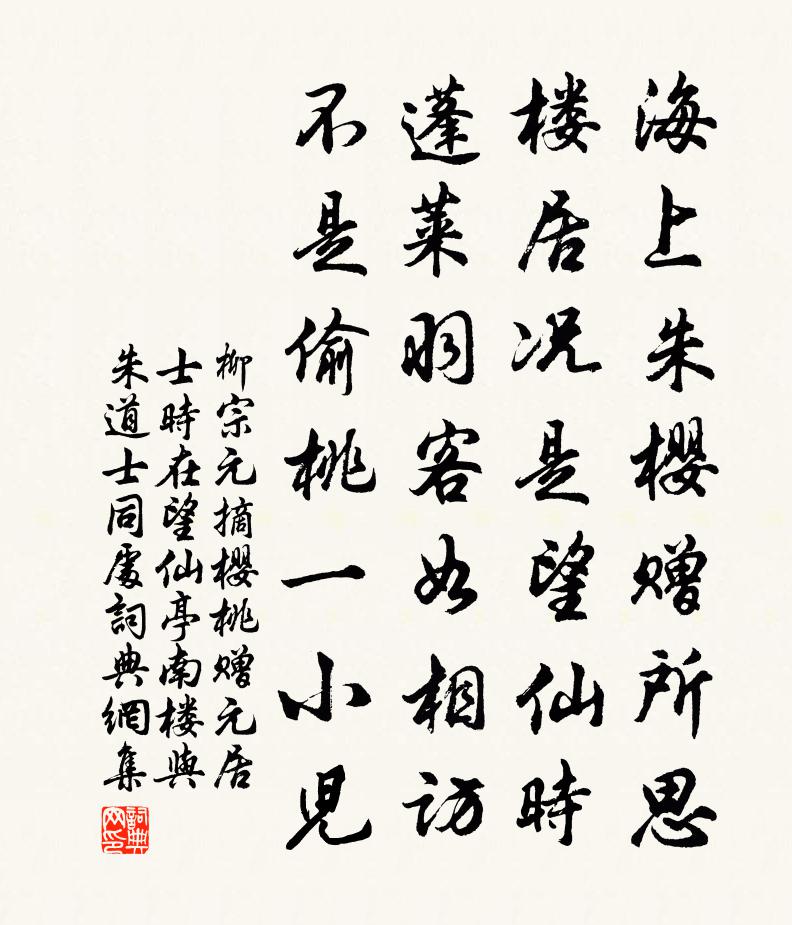 海上朱櫻赠所思
楼居况是望仙時
蓬莱羽客如相訪
不是偷桃一小兒
柳宗元摘櫻桃赠元居
士時在望仙亭南楼與
朱道士同處詞典網集
詞典网印